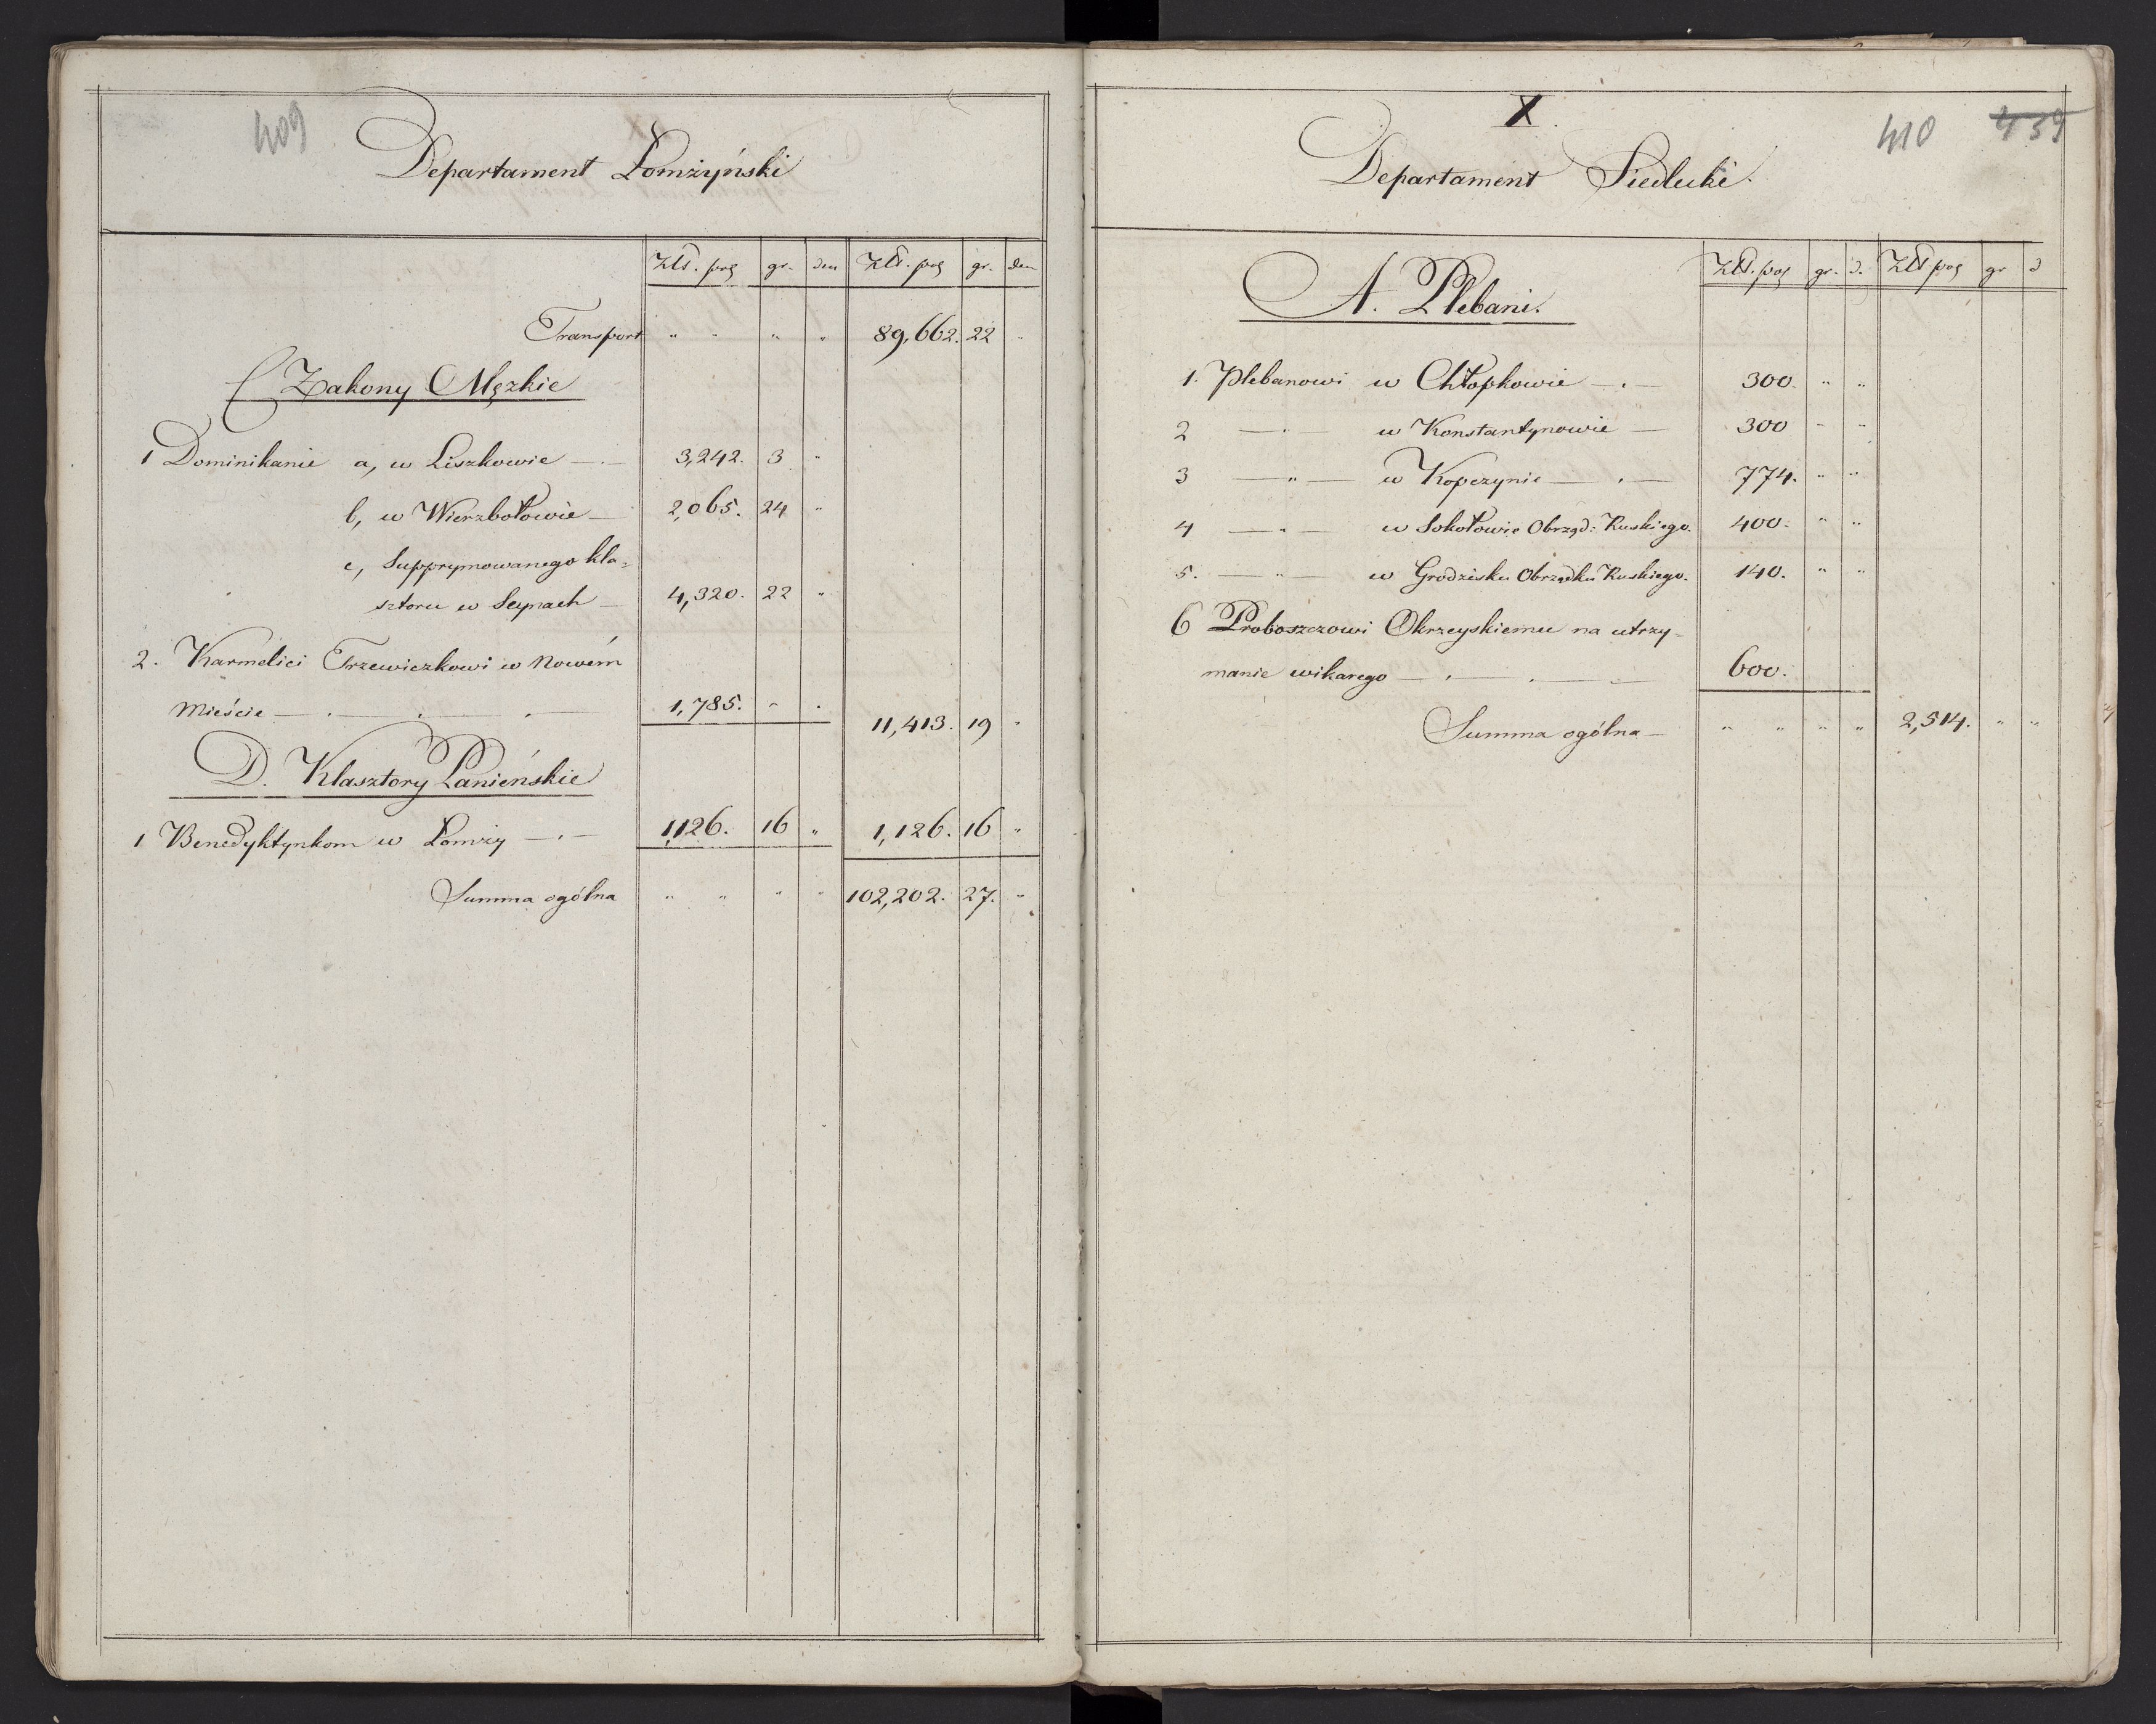 409
Departament Łomżyński
Złł. pog gr. den Złł. pog gr. den
Transport " " " " 89,662. 22 "
C Zakony Męzkie
1 Dominikanie a, w Liszkowie — . — 3,242. 3 "
b, w Wierzbołowie — 2,065. 24 "
c, Supprymowanego kla=
sztoru w Seynach — 4,320. 22 "
2. Karmelici Trzewiczkowi w Nowém
Mieście — . — . — . — 1,785. " . 11,413. 19 "
D. Klasztory Panieńskie
1 Benedyktynkom w Łomży — . — 1,126. 16 " 1,126. 16 "
Summa ogólna " " " " 102,202. 27. "
X.
410 439
Departament Siedlecki.
Złł. pog gr. d. Złł pog gr d
A. Plebani.
1. Plebanowi w Chłopkowie — . — 300. " "
2 — " — w Konstantynowie — 300 " "
3 — " — w Kopczynie — . — 774. " "
4 — " — w Sokołowie Obrząd: Ruskiego. 400. " "
5. — " — w Grodzisku Obrządku Ruskiego. 140. " "
6 Proboszczowi Okrzeyskiemu na utrzy-
manie wikarego — . — . — 600.
Summa ogólna — " " " " 2,514. " "